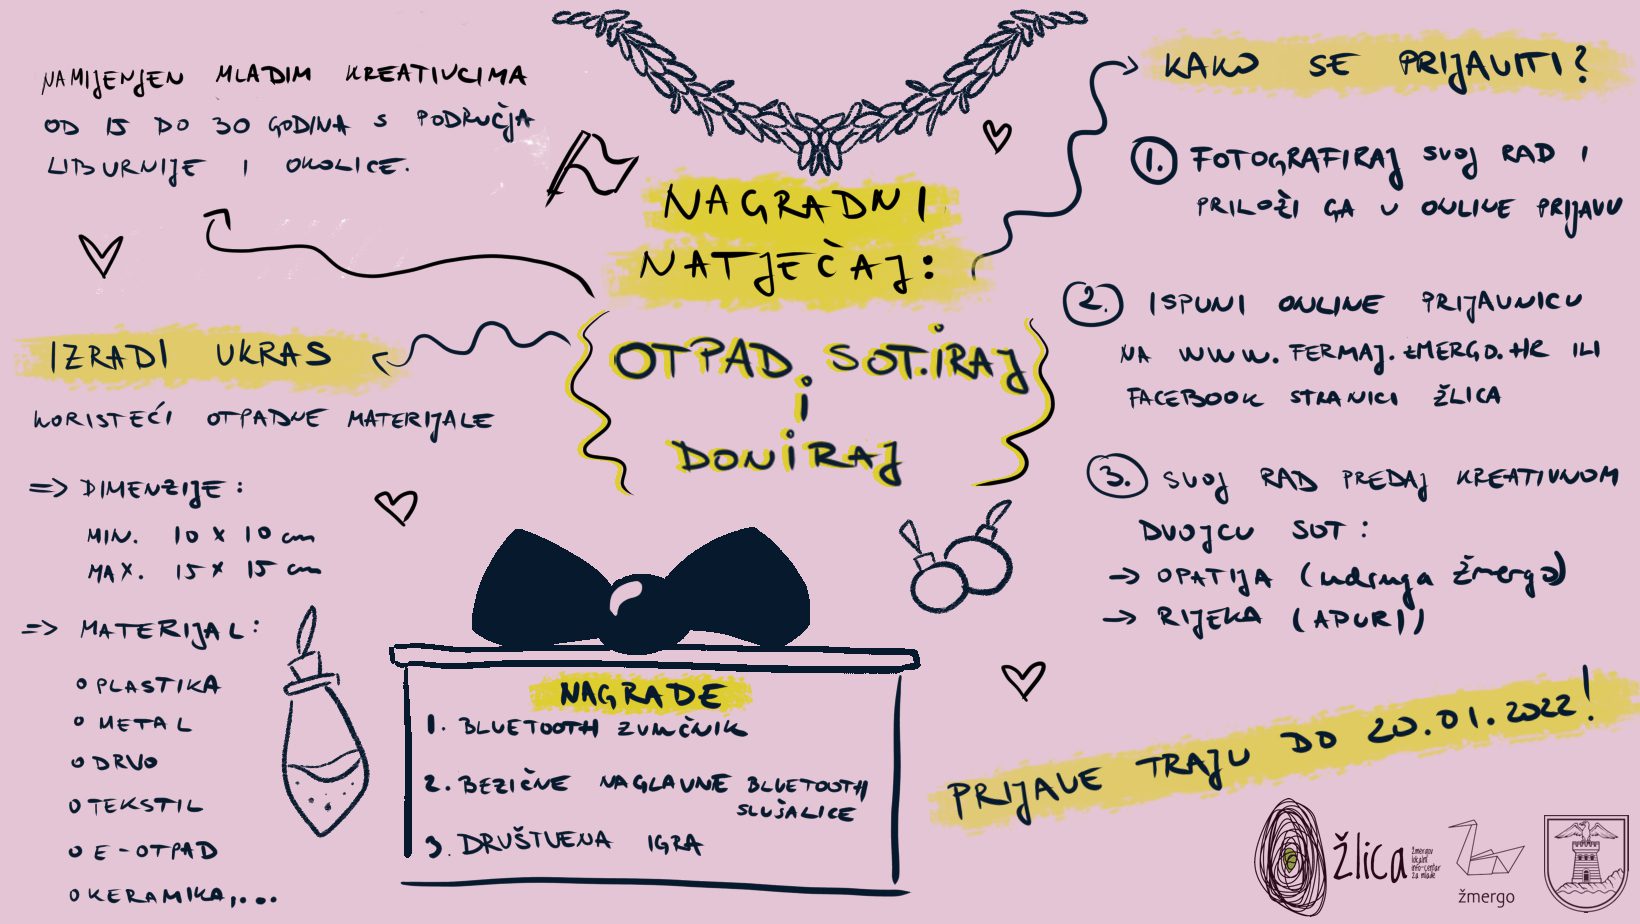 NAMIJENJEN MLADIM KREATIVCIMA
OD 15 DO 30 GODINA S PODRUČJA
LIBURNIJE I OKOLICE.
NAGRADNI
NATJEČAJ:
OTPAD. SOT.IRAJ
i
DONIRAJ
IZRADI UKRAS
KORISTEĆI OTPADNE MATERIJALE
=> DIMENZIJE:
MIN. 10 X 10 cm
MAX. 15 X 15 cm
=> MATERIJAL:
O PLASTIKA
O METAL
O DRVO
O TEKSTIL
O E-OTPAD
O KERAMIKA,...
NAGRADE
1. BLUETOOTH ZVUČNIK
2. BEZIČNE NAGLAVNE BLUETOOTH
SLUŠALICE
3. DRUŠTVENA IGRA
KAKO SE PRIJAVITI?
1. FOTOGRAFIRAJ SVOJ RAD I
PRILOŽI GA U ONLINE PRIJAVU
2. ISPUNI ONLINE PRIJAVNICU
NA WWW.FERMAJ.ZMERGO.HR ILI
FACEBOOK STRANICI ŽLICA
3. SVOJ RAD PREDAJ KREATIVNOM
DVOJCU SOT:
-> OPATIJA (udruga Žmergo)
-> RIJEKA (APURI)
PRIJAVE TRAJU DO 20.01.2022!
žlica
žmergov
lokalni
info-centar
za mlade
žmergo